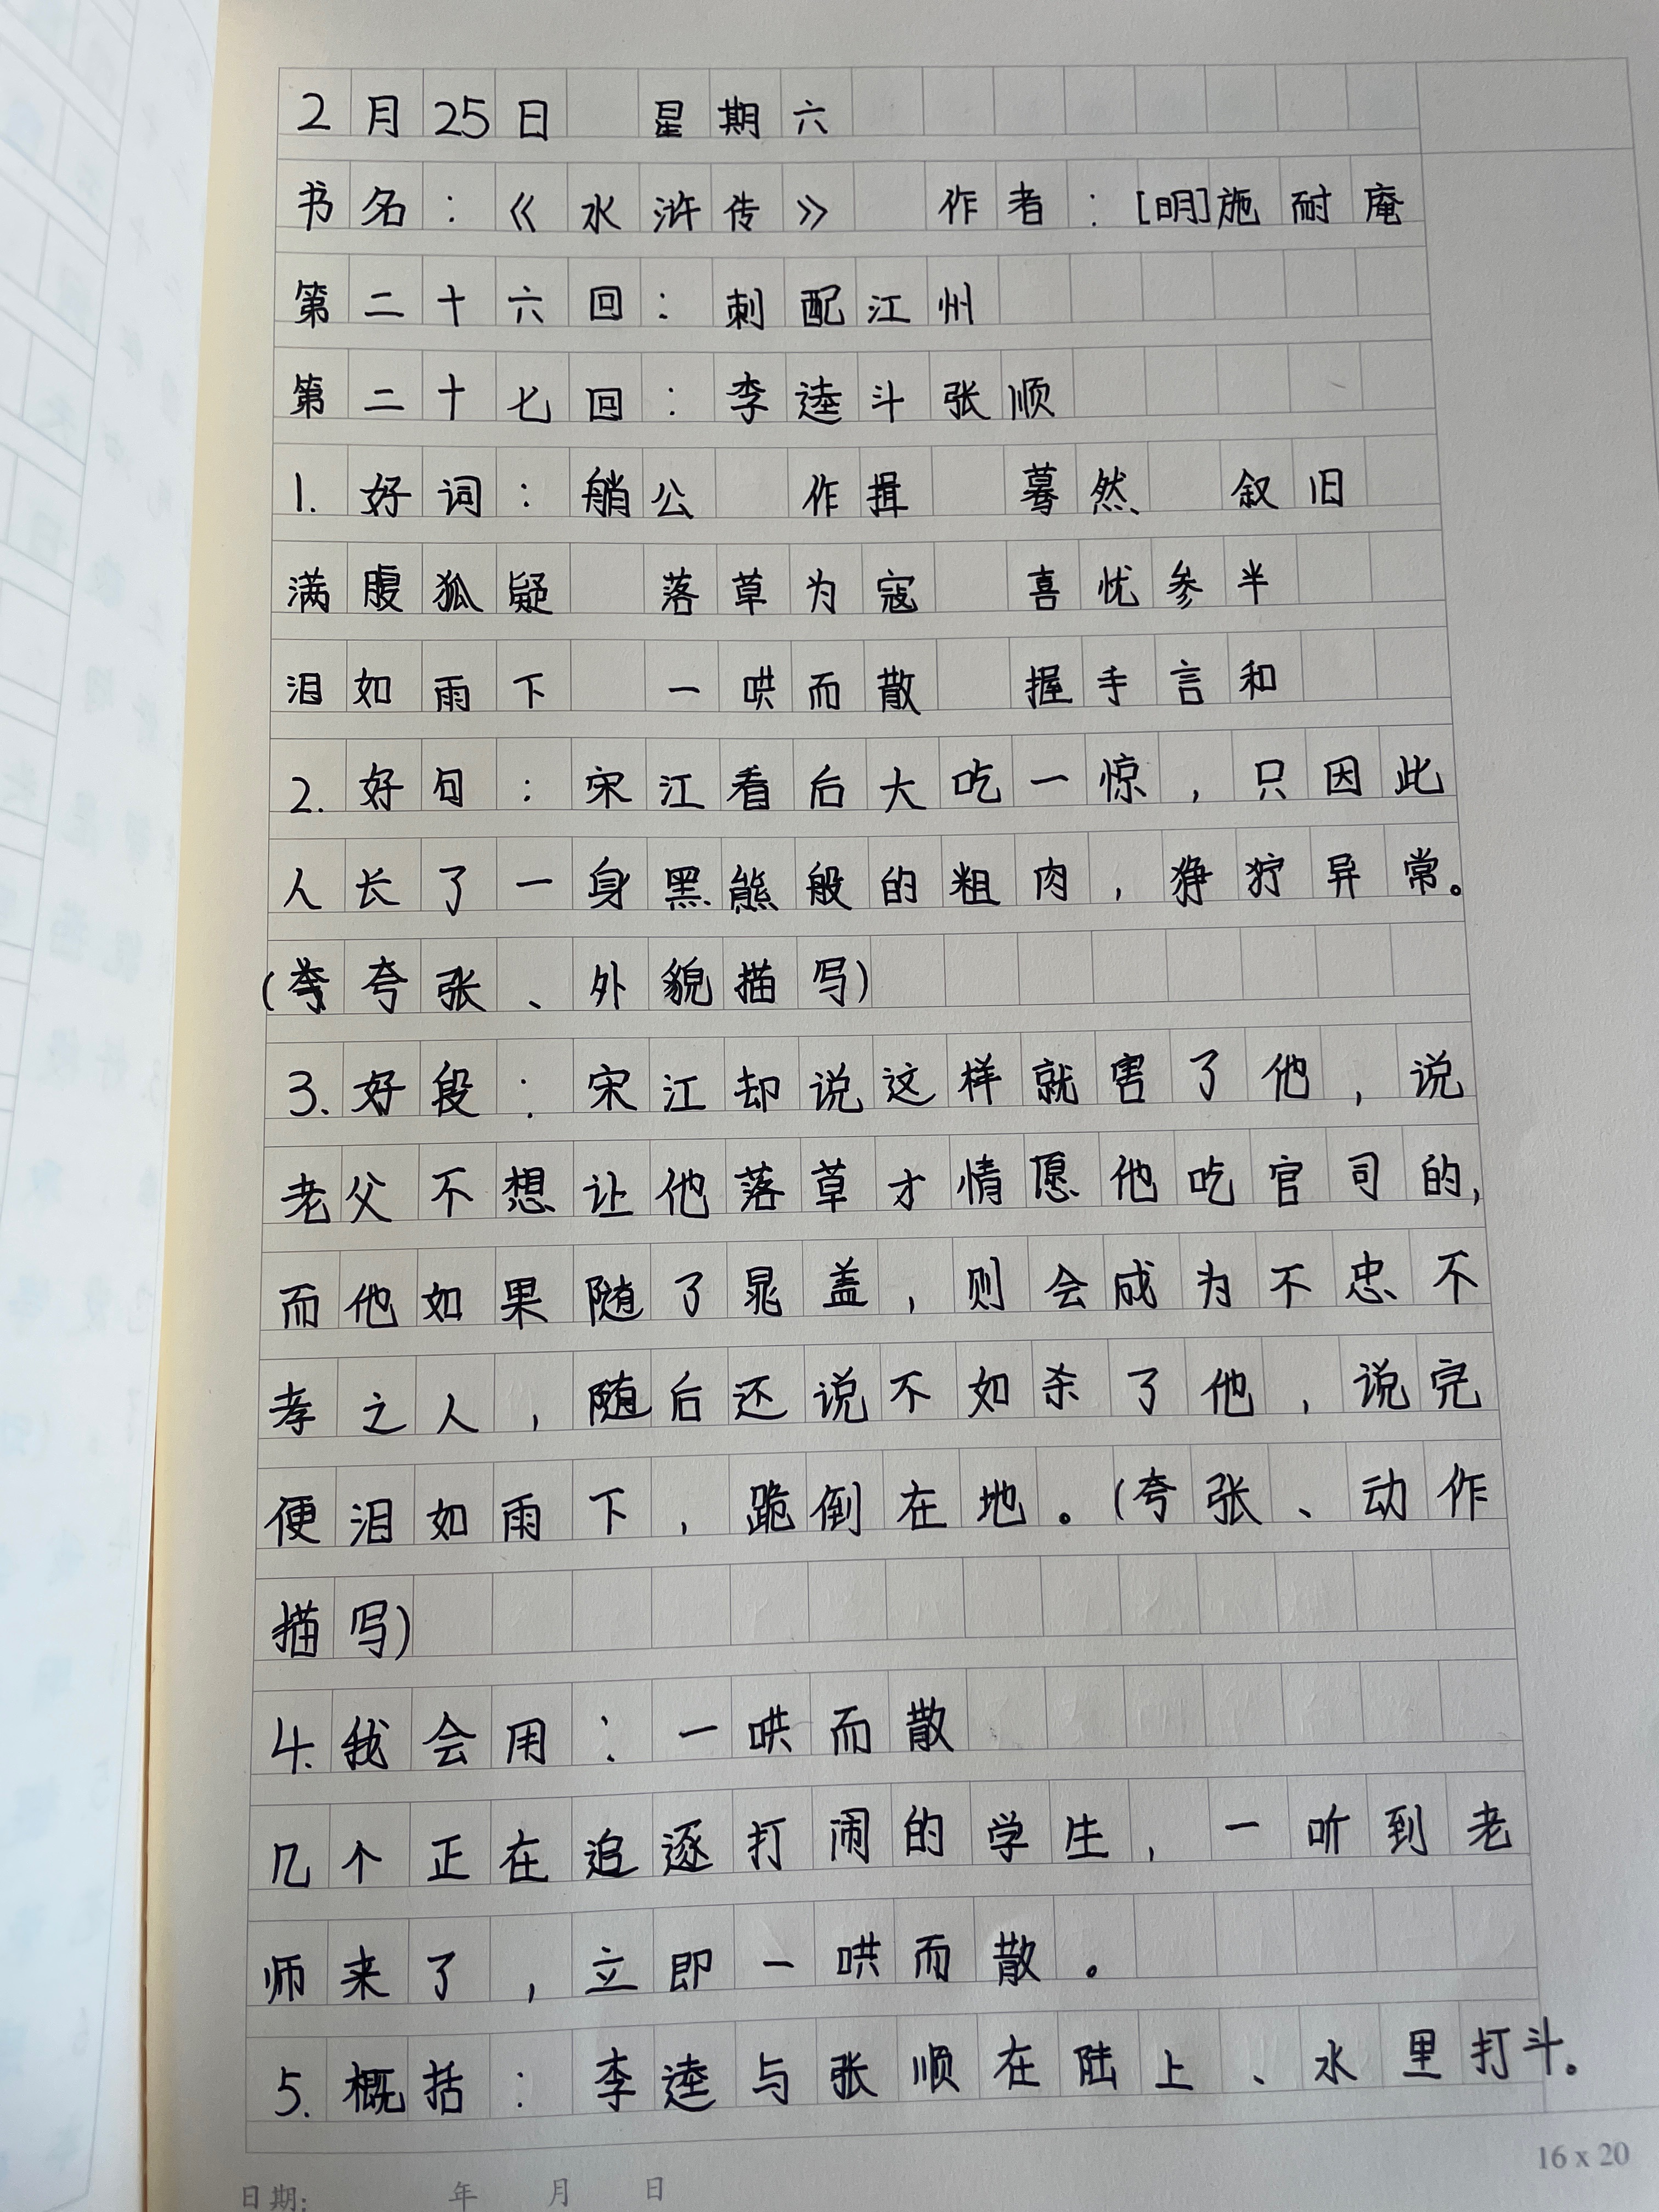 2月25日 星期六
书名：《水浒传》 作者：[明]施耐庵
第二十六回：刺配江州
第二十七回：李逵斗张顺
1.好词：艄公 作揖 蓦然 叙旧
满腹狐疑 落草为寇 喜忧参半
泪如雨下 一哄而散 握手言和
2.好句：宋江看后大吃一惊，只因此
人长了一身黑熊般的粗肉，狰狞异常。
(夸张、外貌描写)
3.好段：宋江却说这样就害了他，说
老父不想让他落草才情愿他吃官司的，
而他如果随了晁盖，则会成为不忠不
孝之人，随后还说不如杀了他，说完
便泪如雨下，跪倒在地。(夸张、动作
描写)
4.我会用：一哄而散
几个正在追逐打闹的学生，一听到老
师来了，立即一哄而散。
5.概括：李逵与张顺在陆上、水里打斗。
16 x 20
日期: 年 月 日